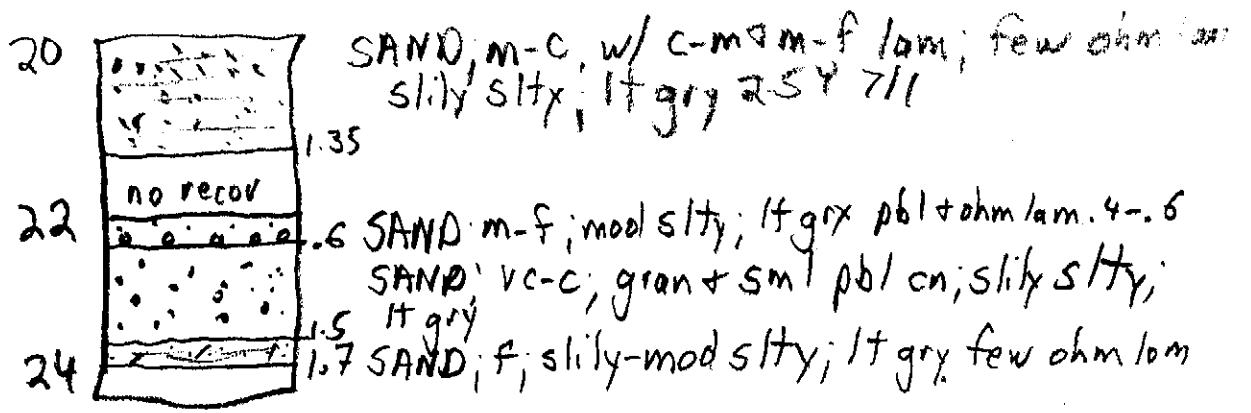 20 SAND; m-c, w/ c-m & m-f lam; few ohm lam
slily slty; lt gry 2.5Y 7/1
1.35
no recov
22 .6 SAND m-f; mod slty; lt gry pbl + ohm lam .4-.6
SAND; vc-c; gran + sml pbl cn; slily slty;
1.5 lt gry
24 1.7 SAND; f; slily-mod slty; lt gry. few ohm lam